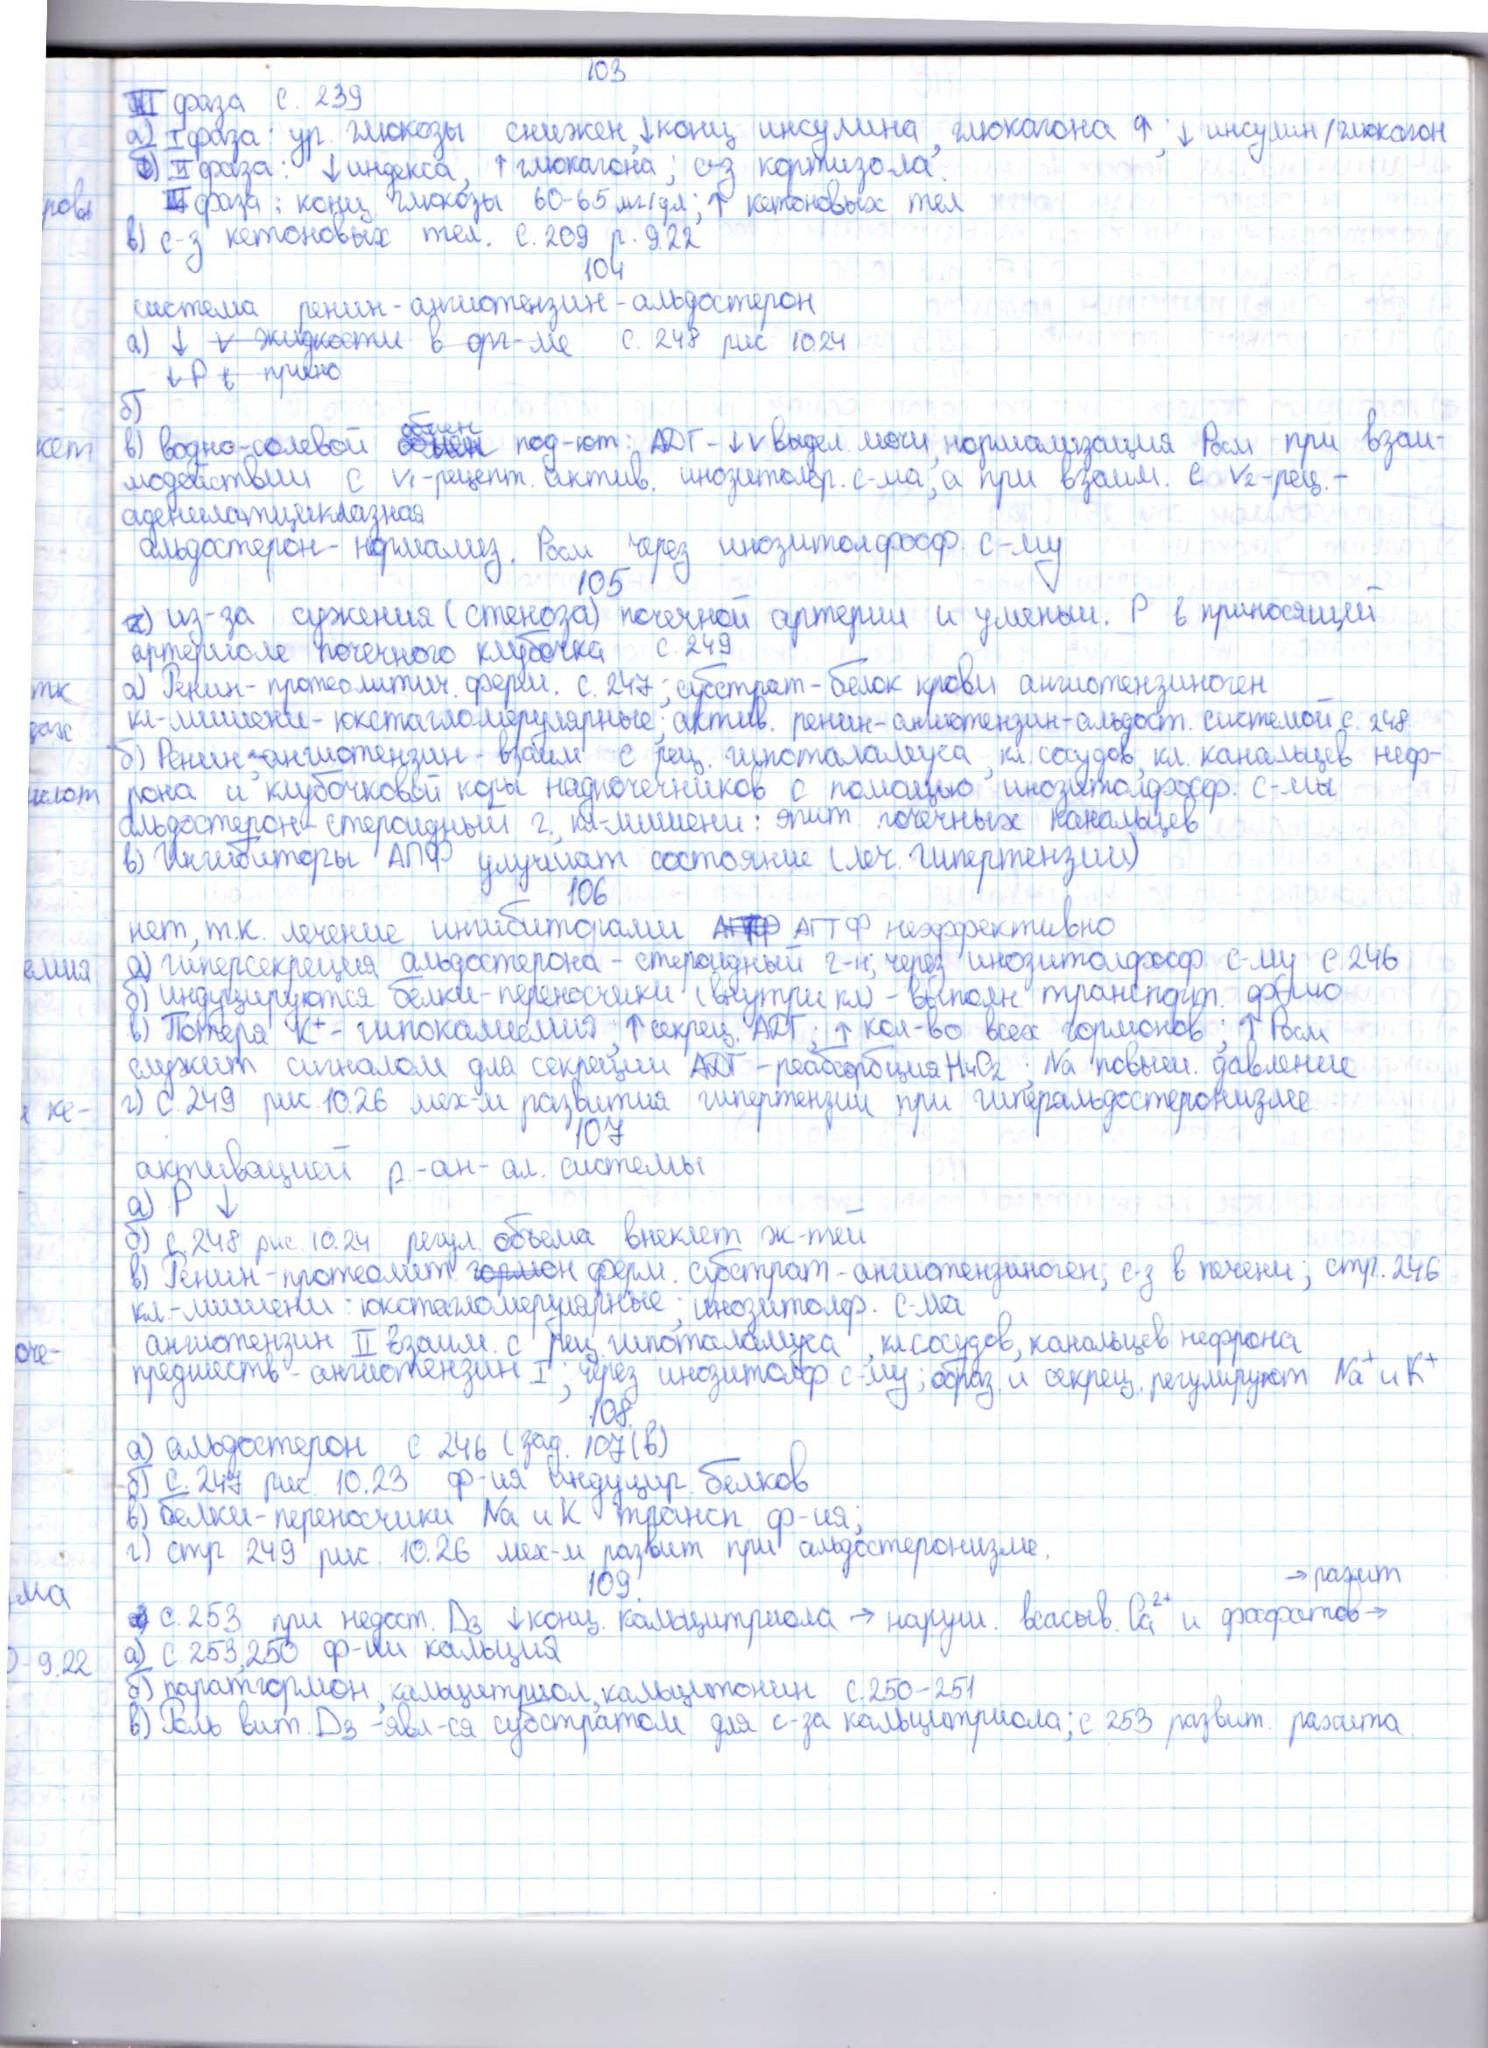 103
III фаза с. 239
а) I фаза: ур. глюкозы снижен, ↓ конц инсулина, глюкагона ↑; ↓ инсулин/глюкагон
б) II фаза: ↓ индекса, ↑ глюкагона; с-з кортизола.
III фаза: конц. глюкозы 60-65 мг/дл; ↑ кетоновых тел
в) с-з кетоновых тел. с. 209 р. 9.22
104
система ренин-ангиотензин-альдостерон
а) ↓ v жидкости в орг-ме с. 248 рис 10.24
↓ P в
б)
в) водно-солевой обмен под-ют: АДГ-↓v выдел мочи, нормализация Росм при взаи-
модействии с V1-рецепт. актив. инозитолф. с-ма, а при взаим. с V2-рец.-
аденилатциклазная
альдостерон-нормализ. Росм через инозитолфосф с-му
105
из-за сужения (стеноза) почечной артерии и уменьш. P в приносящей
артериоле почечного клубочка с. 249
а) Ренин-протеолитич. ферм. с. 247; субстрат-белок крови ангиотензиноген
кл-мишени-юкстагломерулярные; актив. ренин-ангиотензин-альдост. системой с. 248
б) Ренин-ангиотензин-взаим с рец. гипоталамуса, кл. сосудов, кл. канальцев неф-
рона и клубочковой коры надпочечников с помощью инозитолфосф. с-мы
альдостерон-стероидный г., кл-мишени: эпит. почечных канальцев
в) Ингибиторы АПФ улучшат состояние (леч. гипертензии)
106
нет, т.к. лечение ингибиторами АПФ неэффективно
а) гиперсекреция альдостерона-стероидный г-н; через инозитолфосф с-му с. 246
б) индуцируются белки-переносчики (внутри кл) - выполн. транспорт. ф-цию
в) Потеря K+ - гипокалиемия, ↑ секрец. АДГ; ↑ кол-во всех гормонов; ↑ Росм
служит сигналом для секреции АДГ-реабсорбция Na повыш. давление
г) с. 249 рис. 10.26 мех-м развития гипертензии при гиперальдостеронизме
107
активацией р.-ан-ал. системы
а) P ↓
б) с. 248 рис. 10.24 регул. объема внеклет ж-тей
в) Ренин-протеолит. гормон ферм. субстрат-ангиотензиноген; с-з в печени; стр. 246
кл.-мишени: юкстагломерулярные; инозитолф. с-ма
ангиотензин II взаим. с рец. гипоталамуса, кл сосудов, канальцев нефрона
предшеств-ангиотензин I; через инозитолф. с-му; образ. и секрец. регулируют Na+ и K+
108.
а) альдостерон с. 246 (зад. 107(в)
б) с. 247 рис. 10.23 ф-ия индуцир. белков
в) белки-переносчики Na и K трансп. ф-ия;
г) стр 249 рис. 10.26 мех-м развит при альдостеронизме.
109.
→ рахит
с. 253 при недост. D3 ↓ конц. кальцитриола → наруш. всасыв. Ca2+ и фосфатов →
а) с 253, 250 ф-ии кальция
б) паратгормон, кальцитриол, кальцитонин с. 250-251
в) Роль вит. D3 -явл-ся субстратом для с-за кальцитриола; с 253 развит. рахита.